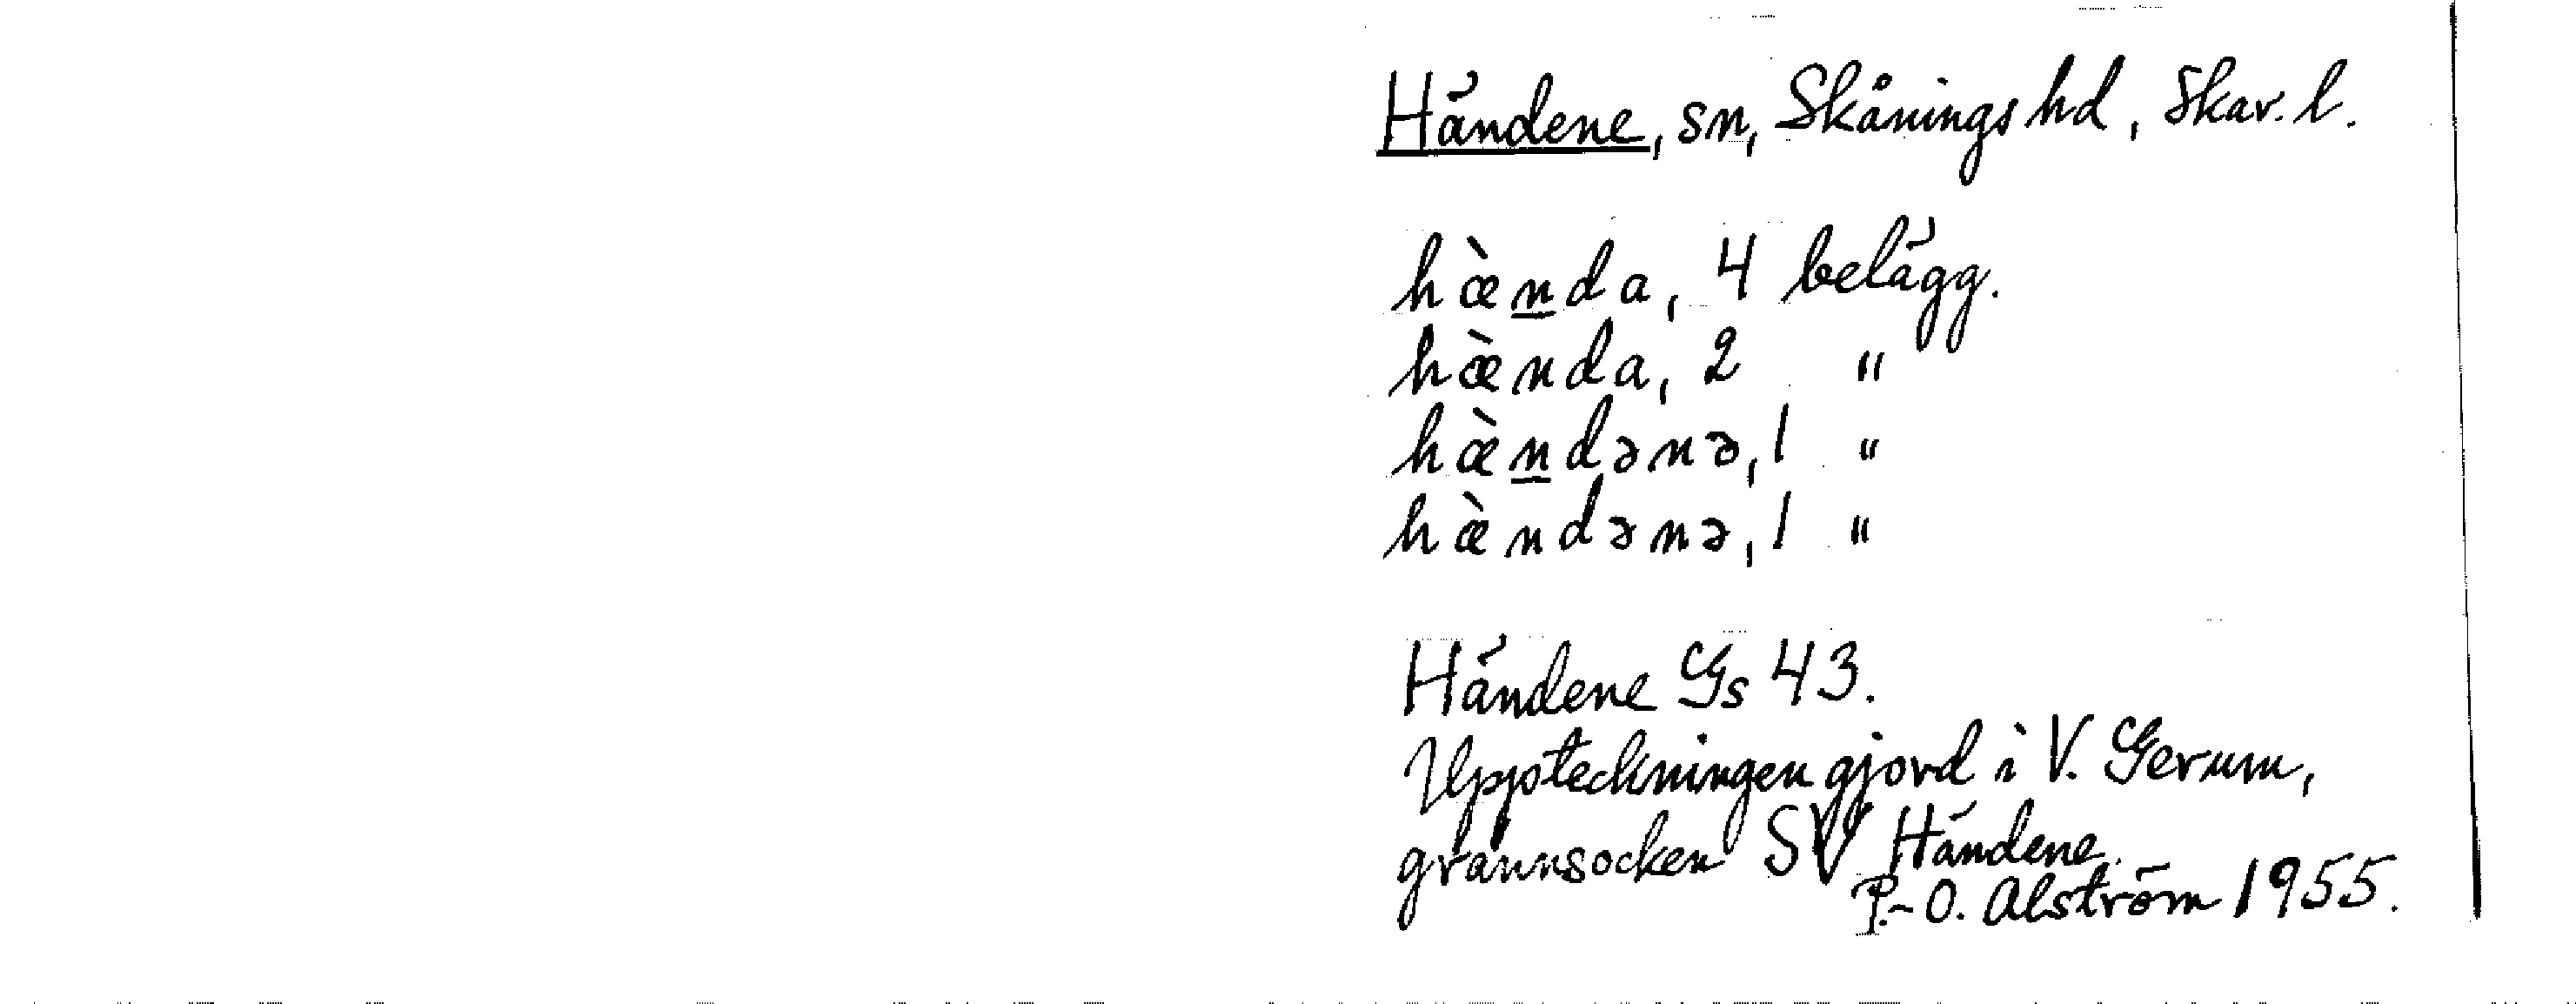 Händene, sn, Skånings hd, Skar. l.
hæ̀n̲da, 4 belägg.
hæ̀nda, 2 "
hæ̀n̲dənə, 1 "
hæ̀ndənə, 1 "
Händene Gs 43.
Uppteckningen gjord i V. Gerum,
grannsocken SV Händene.
P.-O. Alström 1955.